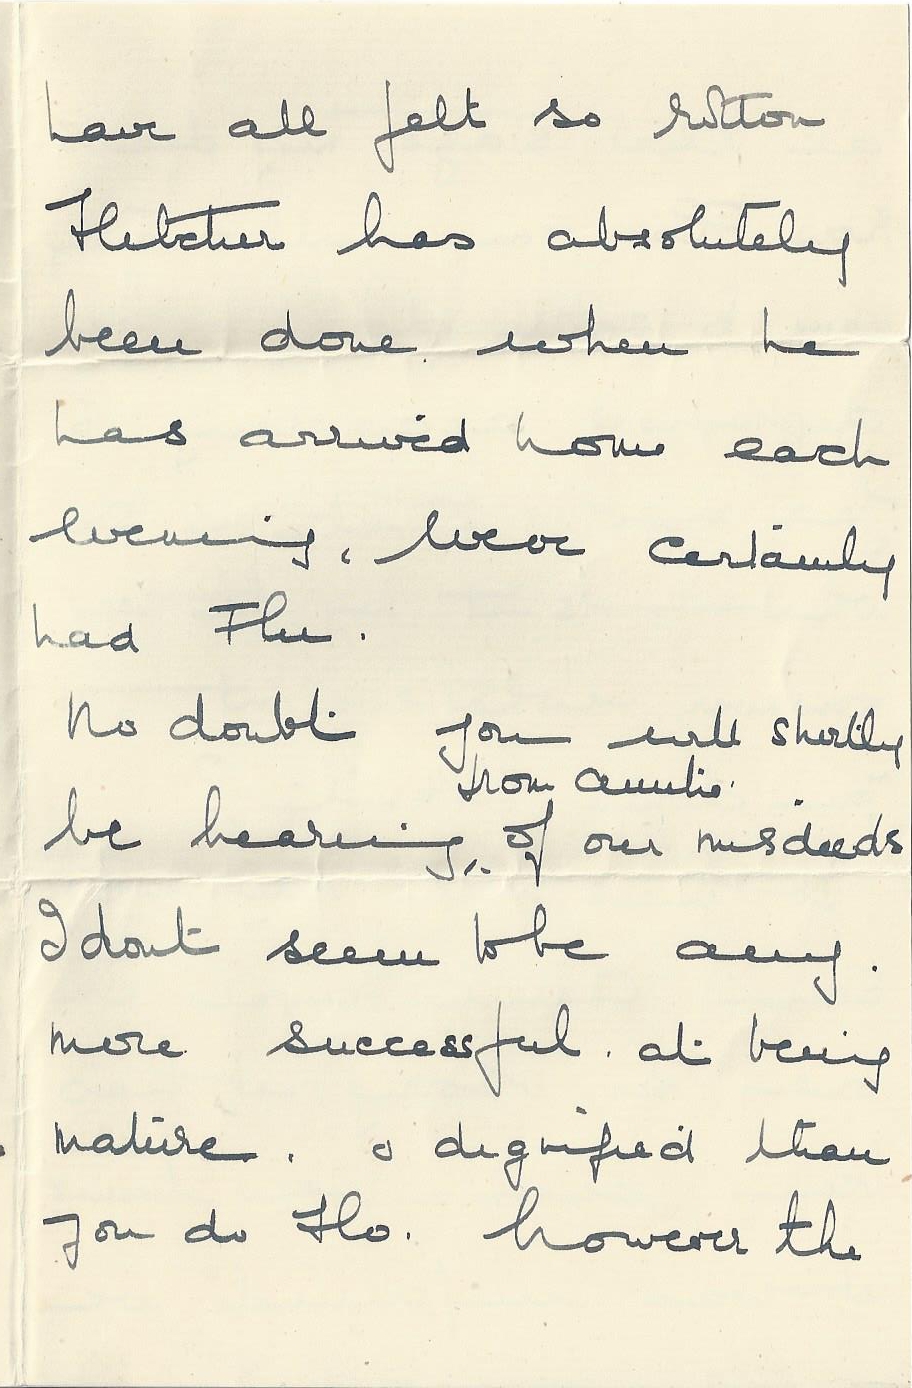 have all felt so rotten
Fletcher has absolutely
been done when he
has arrived home each
evening, weve certainly
had Flu.
No doubt you will shortly
from Auntie
be hearing, of our misdeeds
I dont seem to be any.
more successful. at being
mature. & dignified than
you do Flo. however the